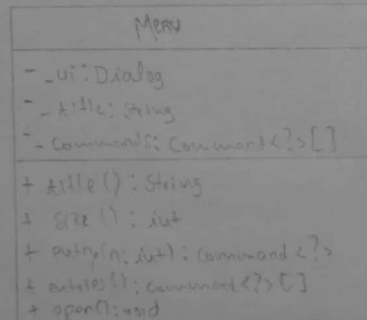 Menu
- _ui: Dialog
- _title: String
- _commands: Command<?>[]
+ title(): String
+ size(): int
+ entry(n: int): Command<?>
+ entries(): Command<?>[]
+ open(): void